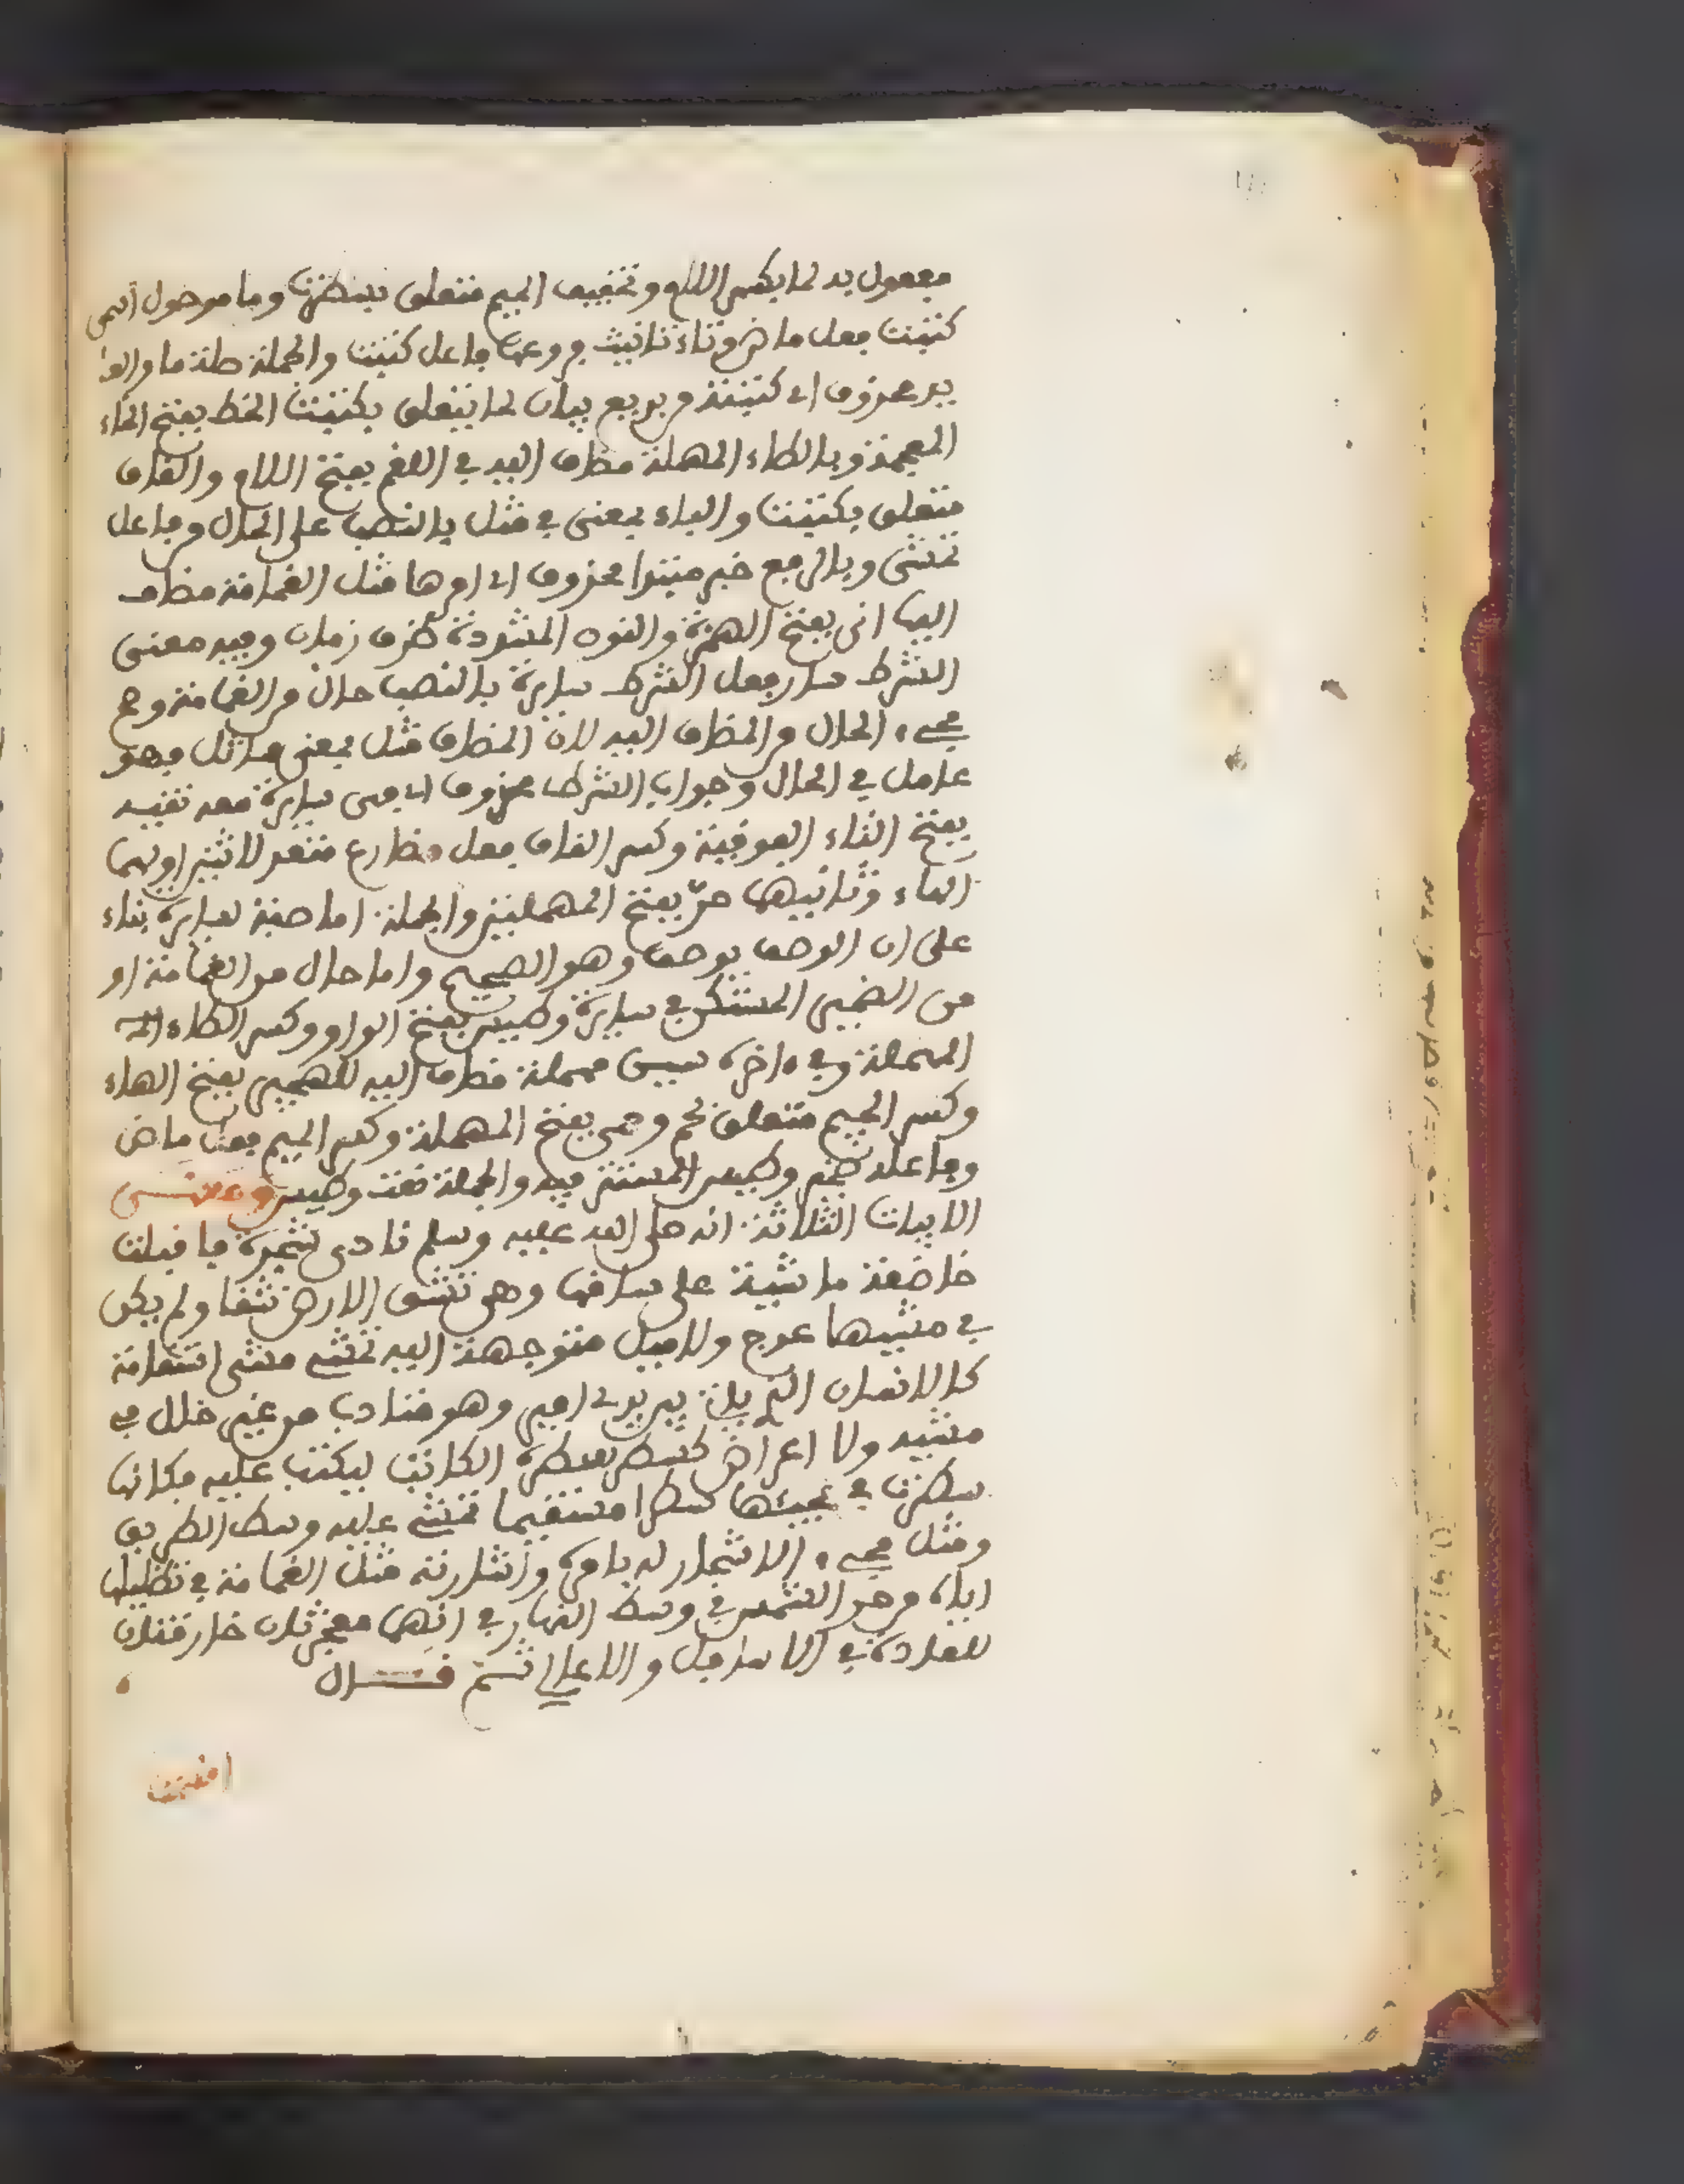 مفعول به لما بكسر اللام وتخفيف الميم متعلق بسطرت وما موصول اسمى
كتبت فعل ماض وتاء تانيث فروعها فاعل كتبت والجملة صلة ما والعا
يد محذوف اى كتبته من بديع بيان لما يتعلق بكتبت الخط بفتح الخاء
المعجمة وبالطاء المهملة مضاف اليه في اللقم بفتح اللام والقاف
متعلق بكتبت والباء بمعنى في مثل بالنصب على الحال من فاعل
تمشى وبالرفع خبر مبتدا محذوف اى امرها مثل الغمامة مضاف
اليها انى بفتح الهمزة والنون المشددة ظرف زمان وفيه معنى
الشرط سار فعل الشرط سايرة بالنصب حال من الغمامة وصح
مجيء الحال من المضاف اليه لان المضاف مثل بمعنى مماثل فهو
عامل في الحال وجواب الشرط محذوف اى فهى سايرة معه تقيه
بفتح التاء الفوقية وكسر القاف فعل مضارع متعد لاثنين اولهما
الهاء وثانيهما حرّ بفتح المهملتين والجملة اما صفة لسايرة بناء
على ان الوصف يوصف وهو الصحيح واما حال من الغمامة او
من الضمير المستكن في سايرة وطيس بفتح الواو وكسر الطاء المـ
المهملة وفي ءاخره سين مهملة مضاف اليه للهجير بفتح الهاء
وكسر الجيم متعلق بحم وحمى بفتح المهملة وكسر الميم فعل ماض
وفاعله ضمير وطيس المستتر فيه والجملة نعت وطيس ومعنــى
الابيات الثلاثة انه صلى الله عليه وسلم نادى شجرة فاقبلت
خاضعة ماشية على ساقها وهى تشق الارض شقا ولم يكن
في مشيها عوج ولا ميل متوجهة اليه تمشى مشى استقامة
كالانسان الذى ياتى بين يدى امير وهو متادب من غير خلل في
مشيه ولا اعراض كسطر سطره الكاتب ليكتب عليه فكانها
سطرت في مجيئها سطرا مستقيما تمشى عليه وسط الطريق
ومثل مجيء الاشجار له بامره واشارته مثل الغمامة في تظليلها
اياه من حر الشمس في وسط النهار في انهما معجزتان خارقتان
للعادة في الاسافل والاعالى ثــم قــــال
اقسمت